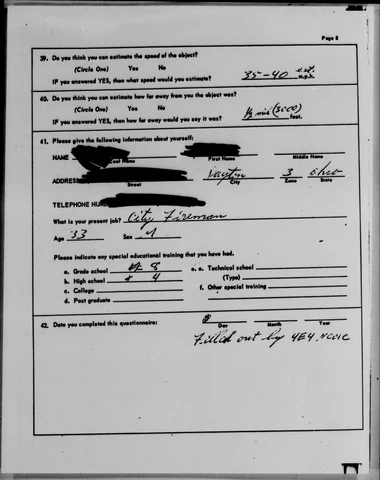 Page 8
39. Do you think you can estimate the speed of the object?
(Circle One) Yes No
IF you answered YES, then what speed would you estimate? 35-40 est. m.p.h.
40. Do you think you can estimate how far away from you the object was?
(Circle One) Yes No
IF you answered YES, then how far away would you say it was? ½ mi (3000) feet.
41. Please give the following information about yourself:
NAME
Last Name First Name Middle Name
ADDRESS Dayton 3 Ohio
Street City Zone State
TELEPHONE
What is your present job? City Fireman
Age 33 Sex M
Please indicate any special educational training that you have had.
a. Grade school 8 e. Technical school
b. High school 4 (Type)
c. College f. Other special training
d. Post graduate
42. Date you completed this questionnaire:
Day Month Year
Filled out by 4E4 NCOIC